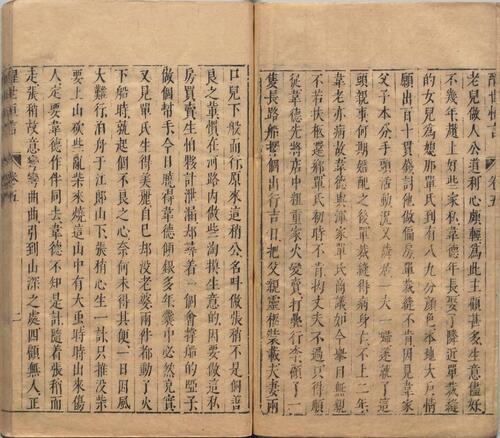 醒世恒言　卷五
老兒做人公道利心頗輕為此主顧甚多生意儘好
不幾年趲上好些家私韋德年長娶了隣近單裁縫
的女兒為媳那單氏到有八九分顏色本地大戶情
願出百十貫錢討他做偏房單裁縫不肯因見韋家
父子本分手頭活動況又隣居一夫一婦遂就了這
頭親事何期婚配之後單裁縫得病身亡不上二年
韋老亦病故韋德與渾家單氏商議如今舉目無親
不若扶柩還鄉單氏初時不肯拗丈夫不過只得順
從韋德先將店中粗重家火變賣打疊行李顧了一
隻長路船擇個出行吉日把父親靈柩裝載夫妻兩
口兒下船而行原來這稍公名叫做張稍不是個善
良之輩慣在河路內做些淘摸生意的因要做這私
房買賣生怕夥計泄漏却尋着一個會撐船的啞子
做個幫手今日曉得韋德傾銀多年囊中必然充實
又見單氏生得美麗自己却沒老婆兩件都動了火
下船時就起個不良之心奈何未得其便一日因風
大難行泊舟于江郎山下張稍心生一計只推沒柴
要上山砍些亂柴來燒這山中有大蟲時時出來傷
人定要韋德作伴同去韋德不知是計隨着張稍而
走張稍故意彎彎曲曲引到山深之處四顧無人正
醒世恒言　卷五　二